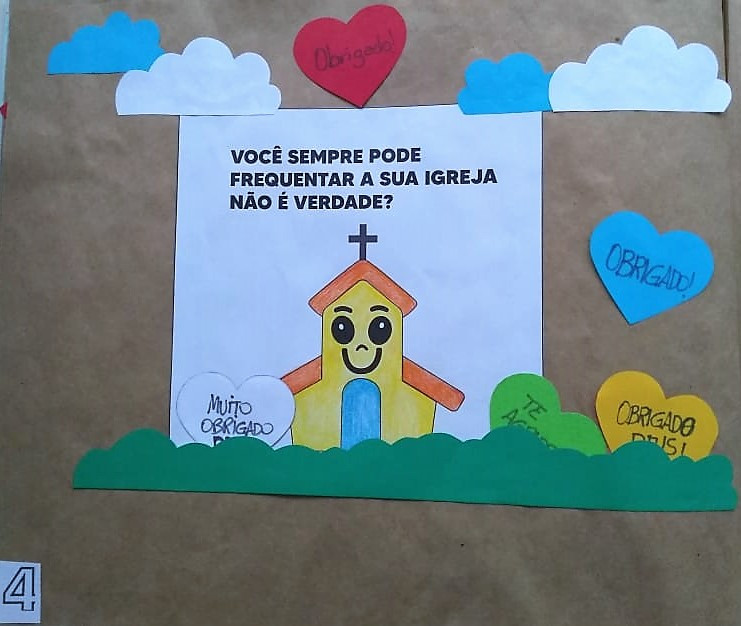 Obrigado!
VOCÊ SEMPRE PODE
FREQUENTAR A SUA IGREJA
NÃO É VERDADE?
OBRIGADO!
MUITO
OBRIGADO
TE
OBRIGADO
DEUS!
4